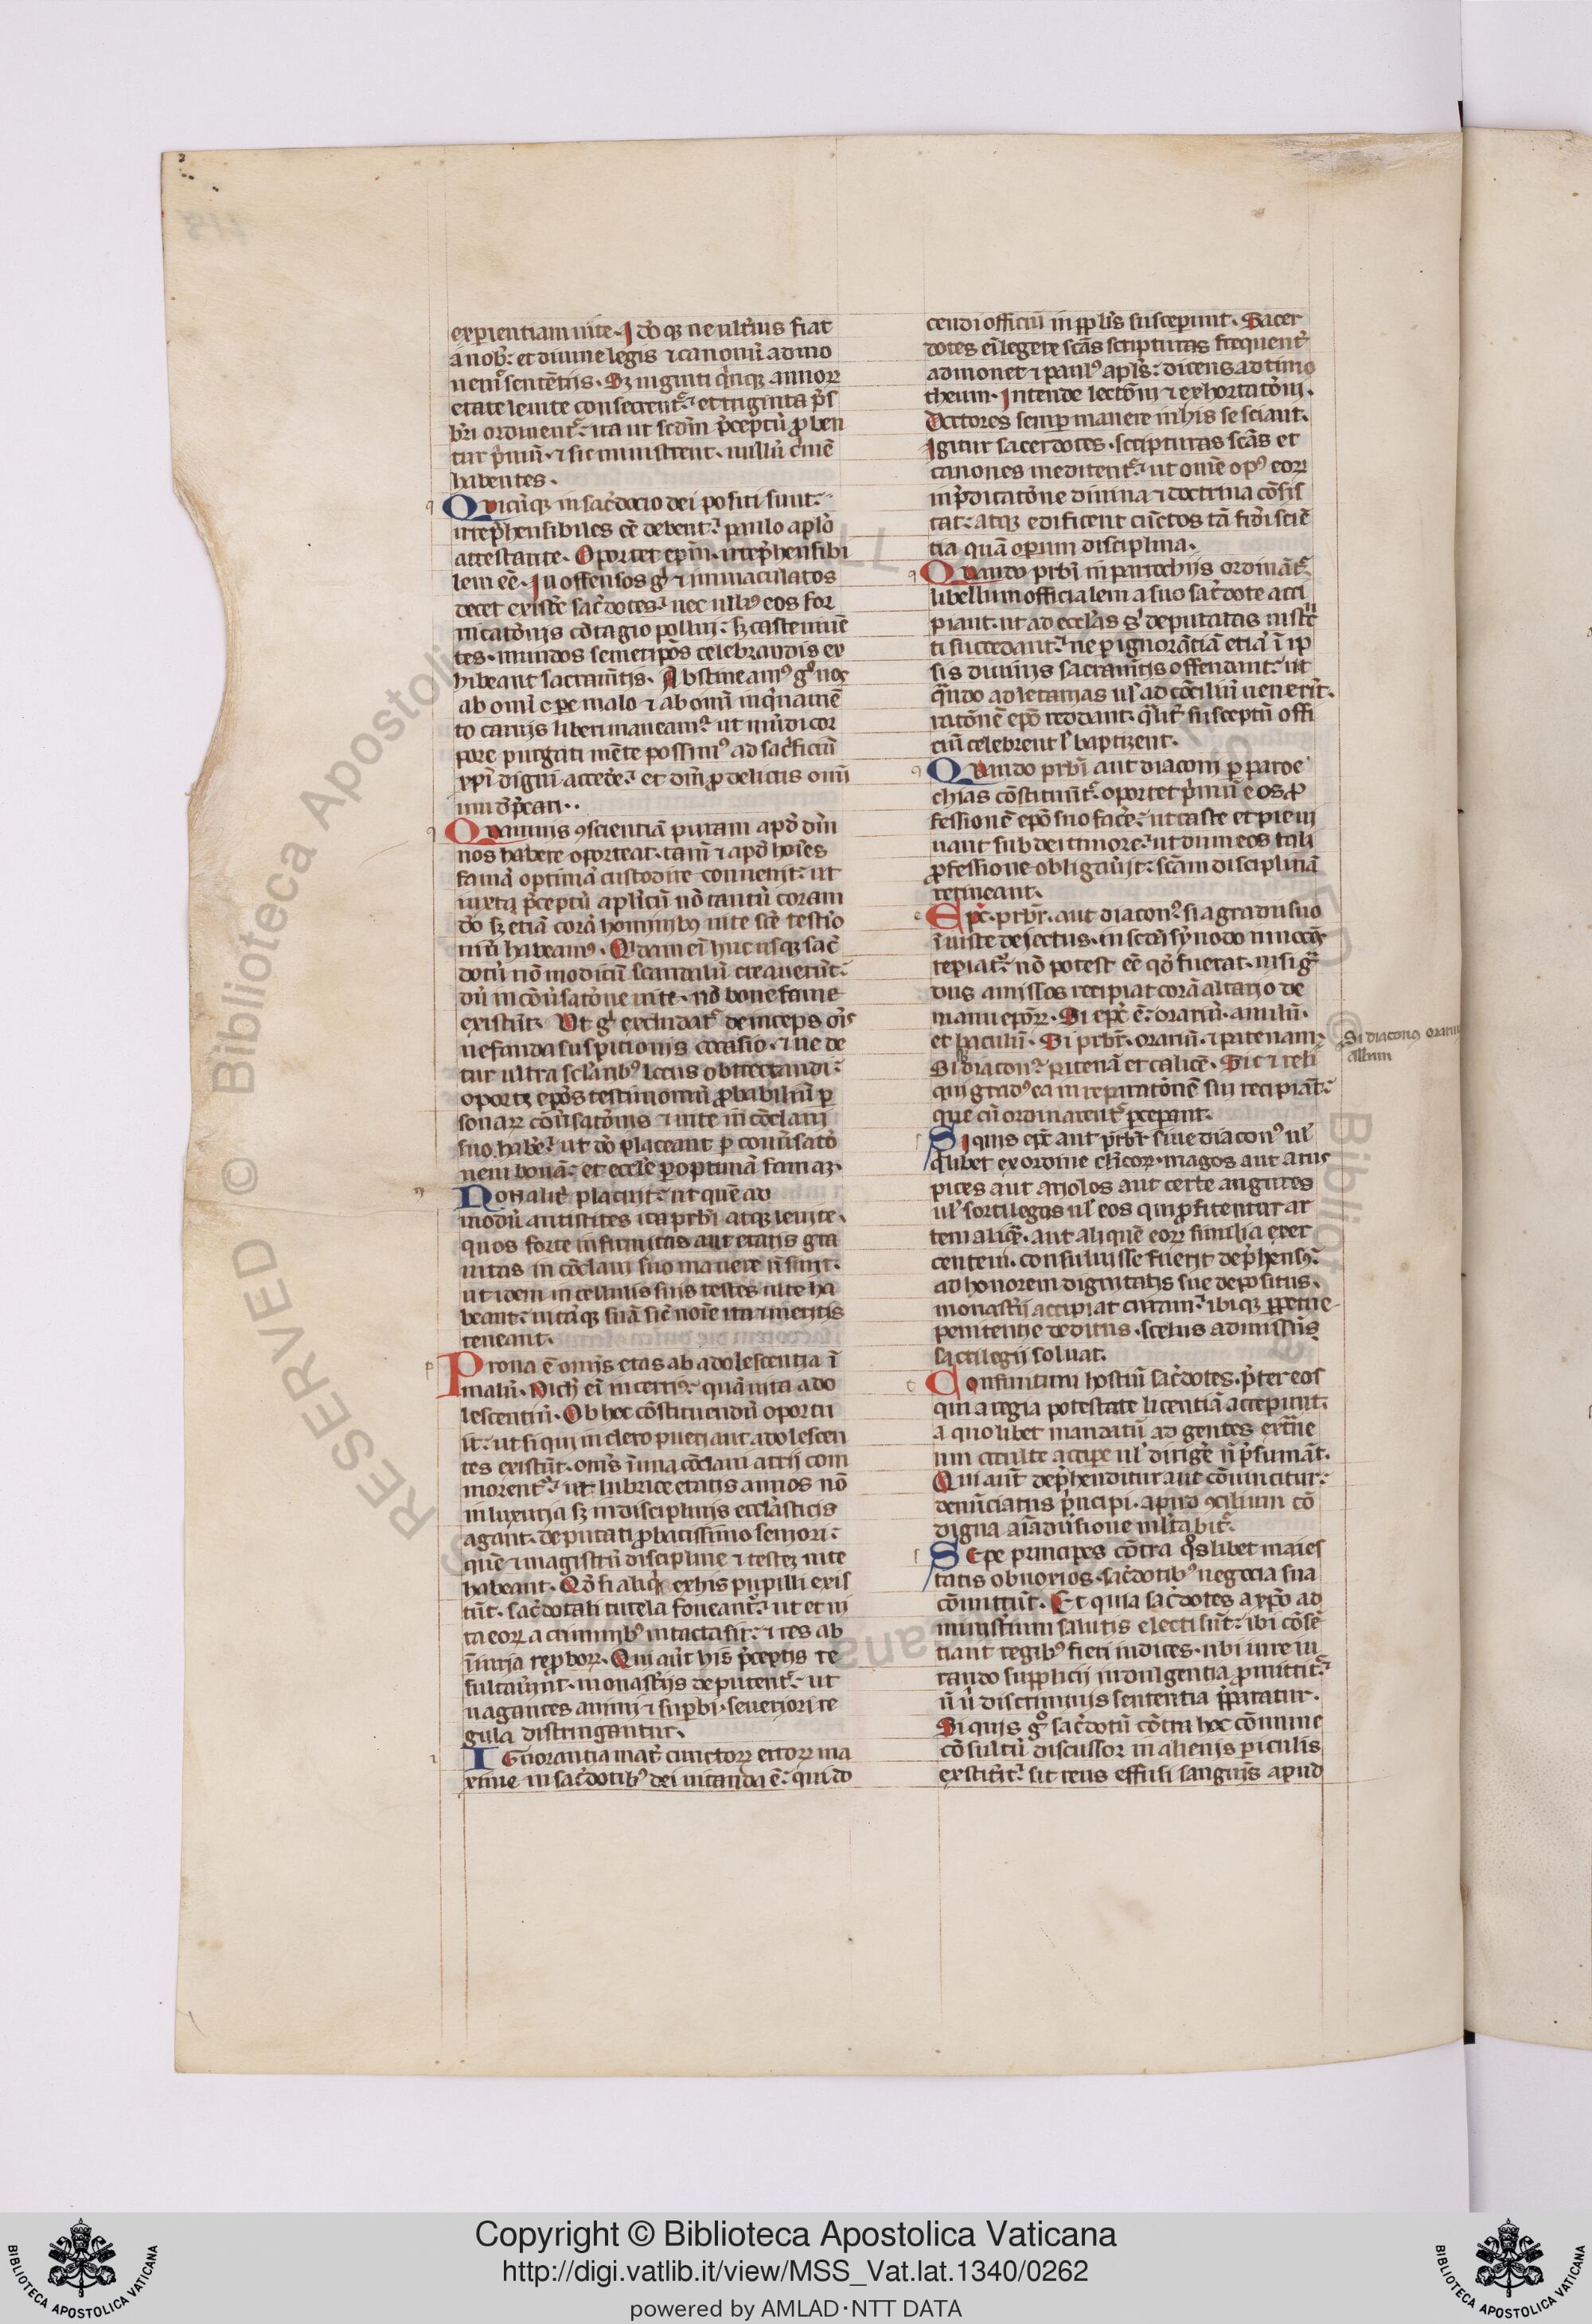 exꝑientiam uite. Idōqꝫ ne ultīus fiat
a nob̄: et diuine legis ⁊ canonū admo
nemʳ sentētiis. Vꝫ uiginti q̇nqꝫ annoꝝ
etate leuite consecrentʳ: et triginta p̄s
bri ordinentʳ: ita ut scd̄m p̄ceptū ꝓben
tur p̄miū. ⁊ sic ministrent. nullū c̄mē
habentes.
Quicūqꝫ in sac̄docio dei positi sunt:
irrep̄hensibiles eē debent: paulo apl̄o
attestante. Oportet ep̄m. irrep̄hensibi
lem eē. Inoffensos gͥ ⁊ immaculatos
decet existe sac̄dotes: nec ullꝰ eos for
nicatōnis cōtagio pollui: sꝫ caste uiuē
tes. mundos semetip̄os celebrandis ex
hibeant sacramētis. Abstineamꝰ gͦ nos
ab omī oꝑe malo ⁊ ab omī inq̇namē
to carnis liberi maneamꝰ: ut mūdi cor
pore purgati mēte possimꝰ ad sac̄ficiū
xp̄i digni acceđe: et dm̄ ꝓ delictis omī
um dp̄cari.
Quamuis ꝯscientiā puram apđ dm̄
nos habere oporteat. tam̄ ⁊ apđ hoīes
famā optimā custodire conuenit: ut
iuxta p̄ceptū apl̄icū nō tantū coram
dō sꝫ etiā corā hominibꝰ uite sc̄e testīo
niū habeamꝰ. Qidam eī huc usqꝫ sac̄
dotū nō modicū scandalū creauerūt:
dū in cōuīsatōne uite. nō bone fame
existūt. Vt gͥ excludatʳ deinceps oīs
nefanda suspitionis occasio. ⁊ ne de
tur ultra sclaribꝰ locus obtrectandi:
oportꝫ ep̄os testimoniū ꝓbabiliū ꝑ
sonaꝝ cōuīsatōnis ⁊ uite in cōclaui
suo habē: ut dō placeant ꝑ conuīsatō
nem bonā: et eccl̄ie ꝑ optimā famaꝫ.
Non alit̄ placuit: ut quē ad
modū antistites ita prbri atqꝫ leuite.
quos forte infirmitas aut etatis gra
uitas in cōclaui suo manere n̄ sinit.
ut idem in cellulis suis testes uite ha
beant: uitāqꝫ suā sic̄ noīe ita ⁊ meritis
teneant.
Prona ē omīs etas ab adolescentia ī
malū. Nich̄ eī incertiꝰ: quā uita ado
lescentiū. Ob hoc cōstituendū oportu
it: ut si qui in clero pueri aut adolescen
tes existūt. omīs ī una cōclaui atrii com
morentʳ: ut lubrice etatis annos nō
in luxuria sꝫ in disciplinis eccl̄asticis
agant. deputati ꝓbatissimo seniori:
quē ⁊ magistrū discipline ⁊ testeꝫ uite
habeant. Qđ si aliq̇ ex his pupilli exis
tūt. sac̄dotali tutela foueantʳ: ut et ui
ta eoꝝ a criminibꝰ intacta sit: ⁊ res ab
īiuria rep̄boꝝ. Qui aūt his p̄ceptis re
sultauīnt. monastīis deputentʳ: ut
uagantes animi ⁊ supbi. seueriori re
gula distringantur.
Ignorantia mat̄ cunctoꝝ erroꝝ ma
xime in sac̄dotibꝰ dei uitanda ē: qui do
cendi officiū in ppl̄is susceperunt. Sacer
dotes eī legere sc̄as scripturas frequent̄
admonet ⁊ paulꝰ apl̄s: dicens ad timo
theum. Intende lectōni ⁊ exhortatōni.
Doctores semꝑ manere in his se sciant.
Igitur sacerdotes. scripturas sc̄as et
canones meditentʳ: ut omē opꝰ eoꝝ
in p̄dicatōne diuina ⁊ doctrina cōsis
tat: atqꝫ edificent cūctos tā fidei sciē
tia quā operum disciplina.
Quando prbri in parrochijs ordinātʳ
libellum officialem a suo sac̄dote acci
piant. ut ad eccl̄as sͥ deputatas instrͨ
ti succedantʳ: ne ꝑ ignorātiā etiā ī ip
sis diuinis sacramētis offendant: ut
qn̄do ad letanias ul̄ ad cōciliū uenerīt.
ratōnē ep̄o reddant. q̄lit̄ susceptū offi
ciū celebrent ł baptizent.
Quando prbri aut diaconi ꝑ paroe
chias cōstituūtʳ. oportet p̄mū eos ꝓ
fessionē ep̄o suo facē: ut caste et pie ui
uant sub dei timore: ut dum eos tali
ꝓfessione obligauīt: sc̄am disciplinā
retineant.
Epc̄. prbr̄. aut diaconꝰ si a gradu suo
īiuste deiectus. in scd̄a synodo innocēs
reperiatʳ: nō potest eē qđ fuerat. nisi gͣ
dus amissos recipiat corā altario de
manu ep̄oꝝ. Si epc̄ ē: orariū. anulū.
et baculū. Si prbr̄. orariū. ⁊ patenam.
Si diaconꝰ. patenā et calicē. Sic ⁊ reli
qui gradꝰ ea in reparatōnē sui recipiāt:
que cū ordinarentʳ ꝑceperunt.
Si quis epc̄ aut prbr̄ siue diaconꝰ ul̄
q̄libet ex ordine cl̄icoꝝ. magos aut arus
pices aut ariolos aut certe augures
ul̄ sortilegos ul̄ eos qui ꝓfitentur ar
tem aliquā. aut aliquē eoꝝ similia exer
centem. consuluisse fuerit dep̄hensꝰ:
ab honorem dignitatis sue depositus.
monastīi accipiat curam: ibiqꝫ ꝑpetue
penitentie deditus. scelus admissūs
sacrilegii soluat.
Confinitimi hostiū sac̄dotes. p̄ter eos
qui a regia potestate licentiā acceperunt.
a quolibet mandatū ad gentes extͣne
um occulte accipe ul̄ dirige n̄ p̄sumāt.
Qui aūt dep̄henditur aut cōuincitur:
denūciatus p̄ncipi. apud ꝯcilium cō
digna aīaduīsione mltabitʳ.
Sepe principes cōtra qͦslibet maies
tatis obnoxios. sac̄dotibꝰ negocia sua
cōmittūt. Et quia sac̄dotes a xp̄o ad
ministīium salutis electi sūt: ibi cōsē
tiant regibꝰ fieri iudices. ubi iure iu
rando supplicii indulgentia ꝓmittitʳ:
n̄ ū discriminis sententia p̄paratur.
Si quis gͦ sac̄dotū cōtra hoc cōmune
cōsultū discussor in alienis ꝑiculis
exstitīt: sit reus effusi sanguis apud
Si diaconꝰ orariū
album
Copyright © Biblioteca Apostolica Vaticana
http://digi.vatlib.it/view/MSS_Vat.lat.1340/0262
powered by AMLAD·NTT DATA
BIBLIOTECA APOSTOLICA VATICANA
BIBLIOTECA APOSTOLICA VATICANA